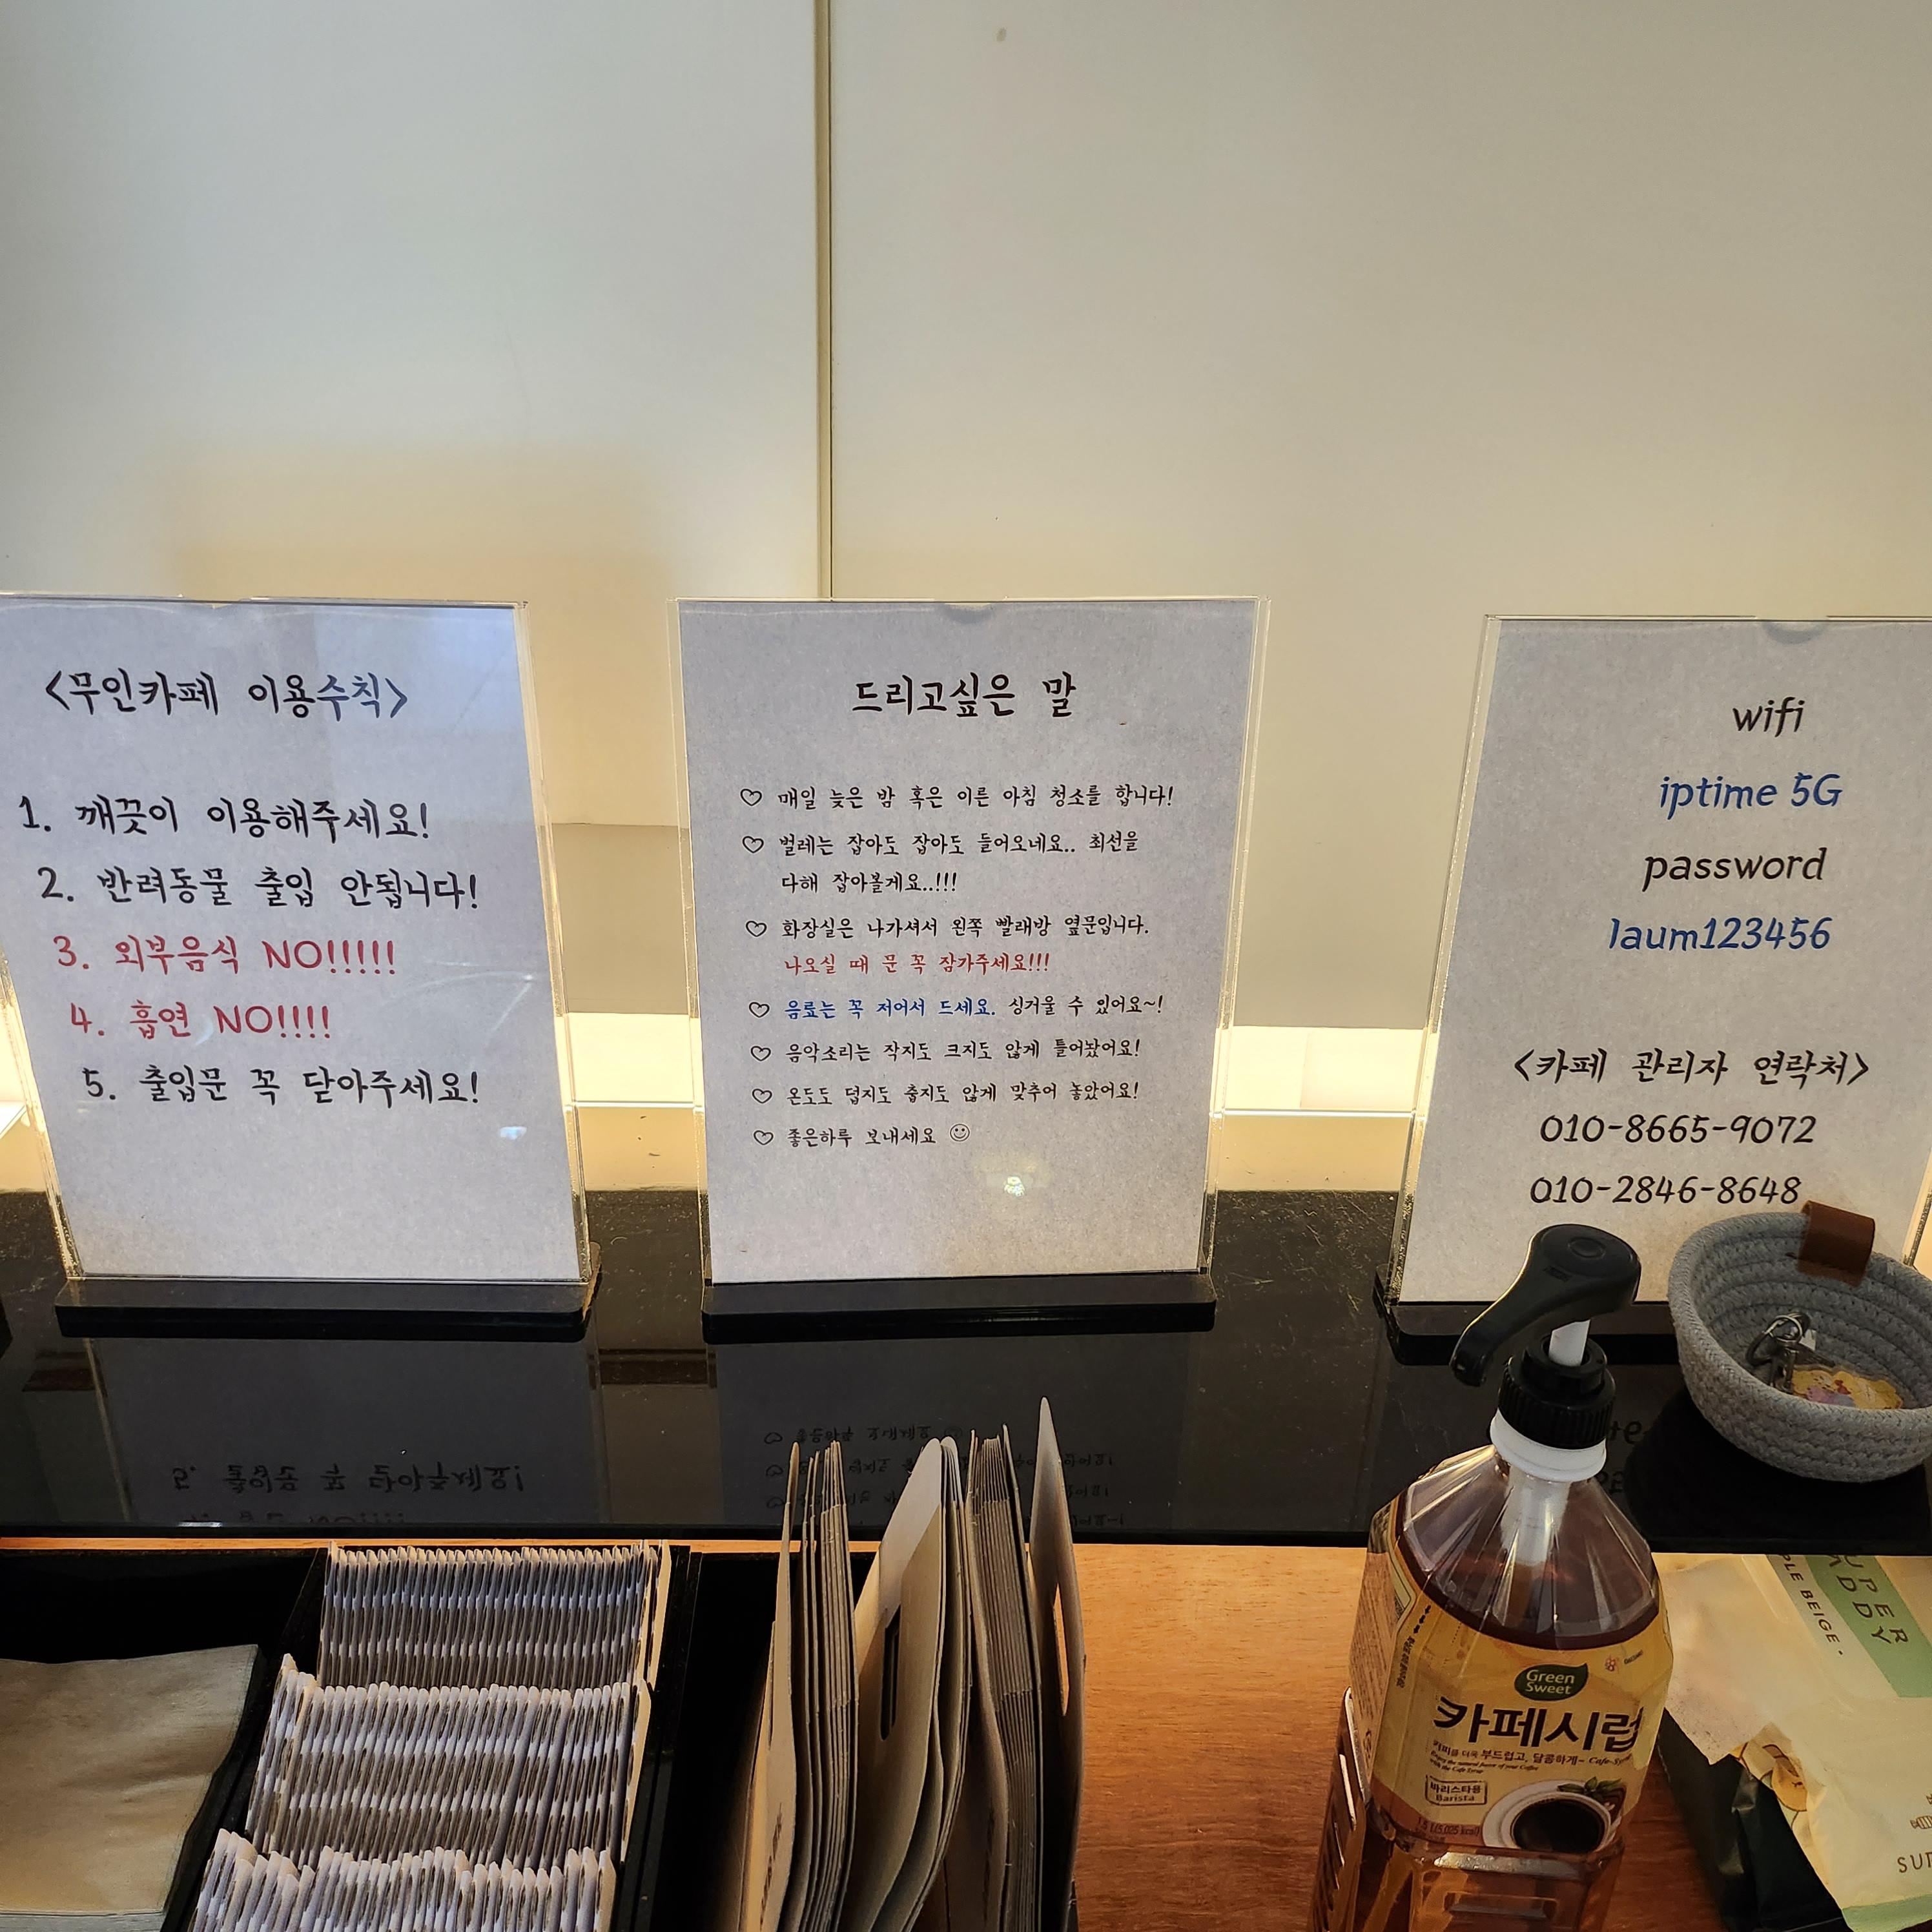 <무인카페 이용수칙>
1. 깨끗이 이용해주세요!
2. 반려동물 출입 안됩니다!
3. 외부음식 NO!!!!!
4. 흡연 NO!!!!
5. 출입문 꼭 닫아주세요!
드리고싶은 말
♡ 매일 늦은 밤 혹은 이른 아침 청소를 합니다!
♡ 벌레는 잡아도 잡아도 들어오네요.. 최선을
다해 잡아볼게요..!!!
♡ 화장실은 나가셔서 왼쪽 빨래방 옆문입니다.
나오실 때 문 꼭 잠가주세요!!!
♡ 음료는 꼭 저어서 드세요. 싱거울 수 있어요~!
♡ 음악소리는 작지도 크지도 않게 틀어놨어요!
♡ 온도도 덥지도 춥지도 않게 맞추어 놓았어요!
♡ 좋은하루 보내세요 ☺
wifi
iptime 5G
password
laum123456
<카페 관리자 연락처>
010-8665-9072
010-2846-8648
Green
Sweet
카페시럽
커피를 더욱 부드럽고, 달콤하게~ Cafe-Syrup
Enjoy the natural flavor of your Coffee
with the Cafe Syrup
바리스타용
Barista
PLE BEIGE